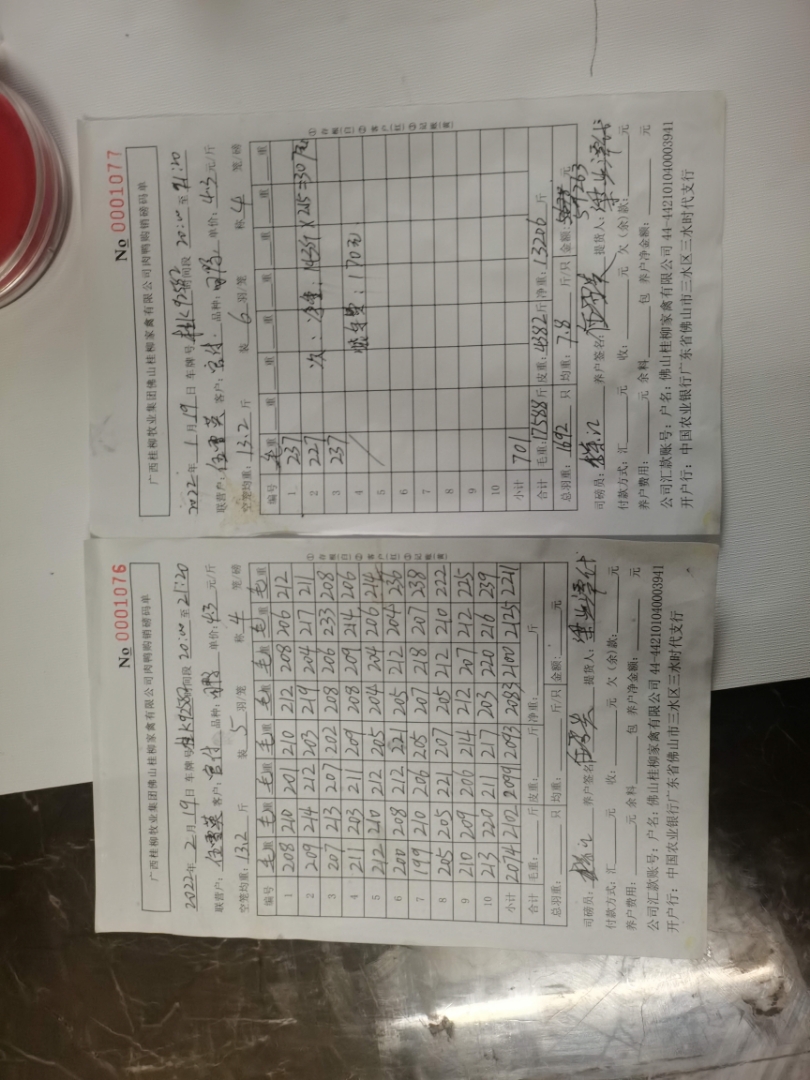 No 0001076
广西桂柳牧业集团佛山桂柳家禽有限公司肉鸭购销磅码单
2022年 2月19日 车牌号 桂K92582 时间段 20:00 至 21:20
联营户: 客户: 品种: 单价: 4.3 元/斤
空笼均重: 13.2 斤 装 5 羽/笼 称 4 笼/磅
编号 毛重 毛重 毛重 毛重 毛重 毛重 毛重 毛重
1 208 210 201 210 212 208 206 212
2 209 214 212 203 219 204 217 211
3 207 213 207 202 208 206 233 208
4 211 203 211 209 208 209 214 206
5 212 210 212 205 204 204 206 214
6 200 208 212 221 205 212 204 236
7 199 210 206 205 207 218 207 238
8 205 205 221 207 205 212 210 222
9 210 209 206 214 212 207 212 225
10 213 220 211 217 203 220 216 239
小计 2074 2102 2099 2093 2083 2100 2125 2211
合计 毛重: 斤 皮重: 斤 净重: 斤
总羽重: 只 均重: 斤/只 金额: 元
司磅员: 养户签名: 提货人:
付款方式: 汇 元 收: 元 欠(余)款: 元
养户费用: 元 余料 包 养户净金额: 元
公司汇款账号: 户名: 佛山桂柳家禽有限公司 44-442101040003941
开户行: 中国农业银行广东省佛山市三水区三水时代支行
①存根(白) ②客户(红) ③记账(黄)
No 0001077
广西桂柳牧业集团佛山桂柳家禽有限公司肉鸭购销磅码单
2022年 1月19日 车牌号 桂K92582 时间段 20:00 至 21:20
联营户: 客户: 品种: 单价: 4.3 元/斤
空笼均重: 13.2 斤 装 6 羽/笼 称 4 笼/磅
编号 毛重 重 重 重 重 重 重 重
1 237
2 227 次: 净重: 143斤 X 2.15=307元
3 237
4 170元
5
6
7
8
9
10
小计 701
合计 毛重: 17588 斤 皮重: 4382 斤 净重: 13206 斤
总羽重: 1692 只 均重: 7.8 斤/只 金额: 57263 元
司磅员: 养户签名: 提货人:
付款方式: 汇 元 收: 元 欠(余)款: 元
养户费用: 元 余料 包 养户净金额: 元
公司汇款账号: 户名: 佛山桂柳家禽有限公司 44-442101040003941
开户行: 中国农业银行广东省佛山市三水区三水时代支行
①存根(白) ②客户(红) ③记账(黄)